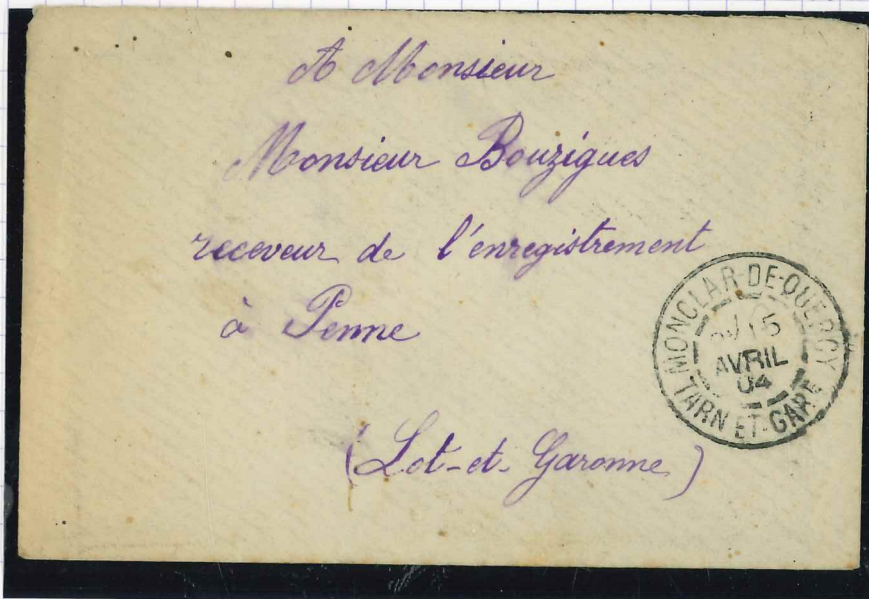 A Monsieur
Monsieur Bouzigues
receveur de l'enregistrement
à Penne
(Lot-et-Garonne)
MONCLAR-DE-QUERCY
5
AVRIL
04
TARN ET-GARE